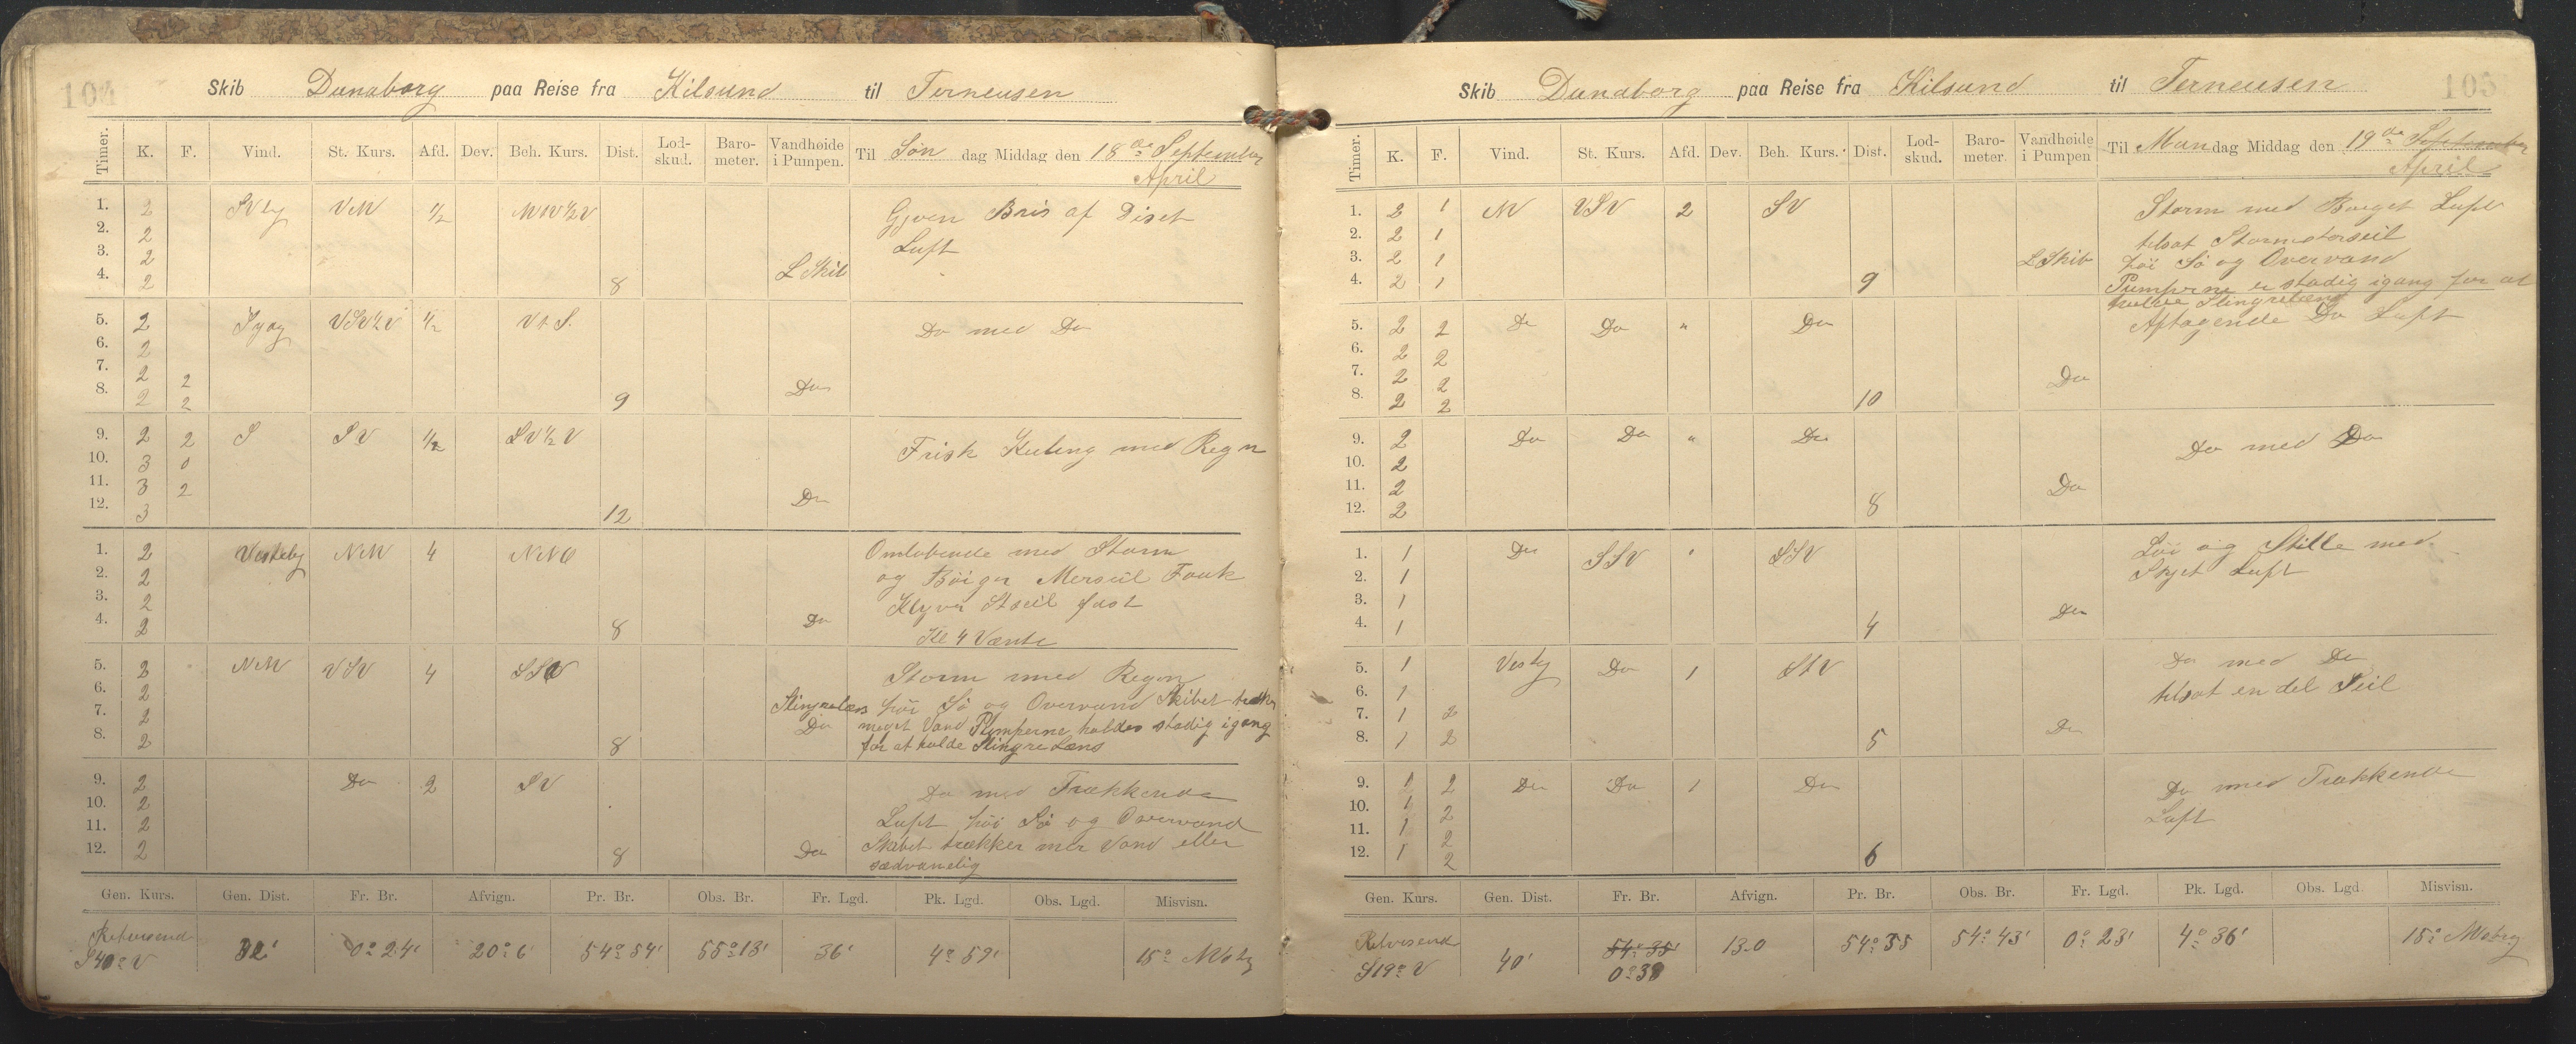 104
Skib Dunaborg paa Reise fra Kilsund til Terneusen
Timer. K. F. Vind. St. Kurs. Afd. Dev. Beh. Kurs. Dist. Lod-skud. Baro-meter. Vandhøide i Pumpen. Til Søn dag Middag den 18de September
April
1. 2 SVly VNV 1/2 NV 1/2 V Gjven Bris af Diset
2. 2 Luft
3. 2 L Skib
4. 2 8
5. 2 Syog VSV 1/2 V 1/2 Vt S. Do med Do
6. 2
7. 2 2 Do
8. 2 2 9
9. 2 2 S SV 1/2 SV 1/2 V Frisk Kuling med Regn
10. 3 0
11. 3 2 Do
12. 3 12
1. 2 Vesteby NNV 4 NNO Omløbende med Storm
2. 2 og Bøiger Merseil Fouk
3. 2 Klyver Stseil fast
4. 2 8 Do Kl 4 Vænte
5. 2 NNV VSV 4 SSV Storm med Regn
6. 2 Slingrelæns høi Sø og Overvand Skibet trækker
7. 2 Do meget Vand Pumperne holdes stadig igang
8. 2 8 for at holde Slingre Læns
9. 2 Do 2 SV Do med Trækkende
10. 2 Luft høi Sø og Overvand
11. 2 Skibet trækker mer Vand eller
12. 2 8 Do sædvanelig
Gen. Kurs. Gen. Dist. Fr. Br. Afvign. Pr. Br. Obs. Br. Fr. Lgd. Pk. Lgd. Obs. Lgd. Misvisn.
Retvisend
S40°V 32' 0°24' 20°6 54°54' 55°13' 36' 4°59' 15° Vstly
105
Skib Dunaborg paa Reise fra Kilsund til Terneusen
Timer. K. F. Vind. St. Kurs. Afd. Dev. Beh. Kurs. Dist. Lod-skud. Baro-meter. Vandhøide i Pumpen Til Man dag Middag den 19de September
April
1. 2 1 NV VSV 2 SV Storm med Byget Luft
2. 2 1 tilsat Stormstorseil
3. 2 1 L Skib høi Sø og Overvand
4. 2 1 9 Pumperne er stadig igang for at
holde Slingrelæns
5. 2 2 Do Do " Do Aftagende Do Luft
6. 2 2
7. 2 2 Do
8. 2 2 10
9. 2 Do Do " Do Do med Do
10. 2
11. 2 Do
12. 2 8
1. 1 Do SSV " SSV Løi og Stille med
2. 1 Skyet Luft
3. 1
4. 1 4 Do
5. 1 Vestly Do 1 StV Do med Do
6. 1 tilsat en del Seil
7. 1 2
8. 1 2 5 Do
9. 1 2 Do Do 1 Do Do med Trækkende
10. 1 2 Luft
11. 1 2
12. 1 2 6
Gen. Kurs. Gen. Dist. Fr. Br. Afvign. Pr. Br. Obs. Br. Fr. Lgd. Pk. Lgd. Obs. Lgd. Misvisn.
Retvisend 54°35' 13.0 54°35 54°43' 0°23' 4°36' 15° Vstly
S19°V 40' 0°38